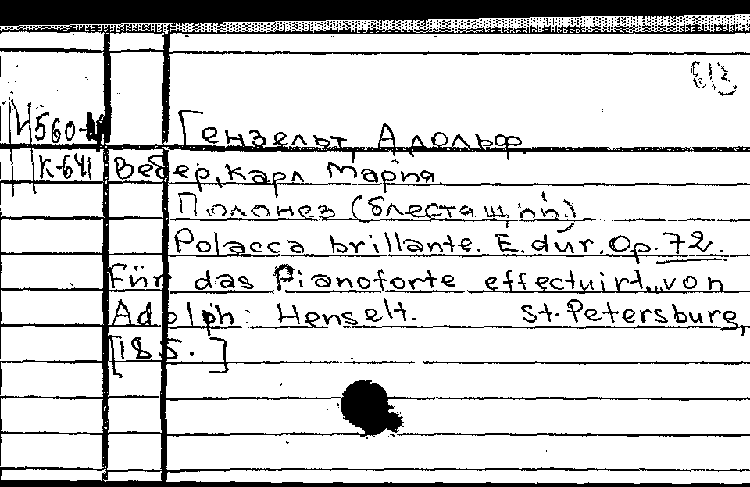 б/з
М560-И
Гензельт, Адольф
К-641 Вебер, Карл Мария
Полонез (блестящий)
Polacca brillante. E. dur. Op. 72.
Für das Pianoforte effectuirt von
Adolph Henselt. St. Petersburg,
[185. ]